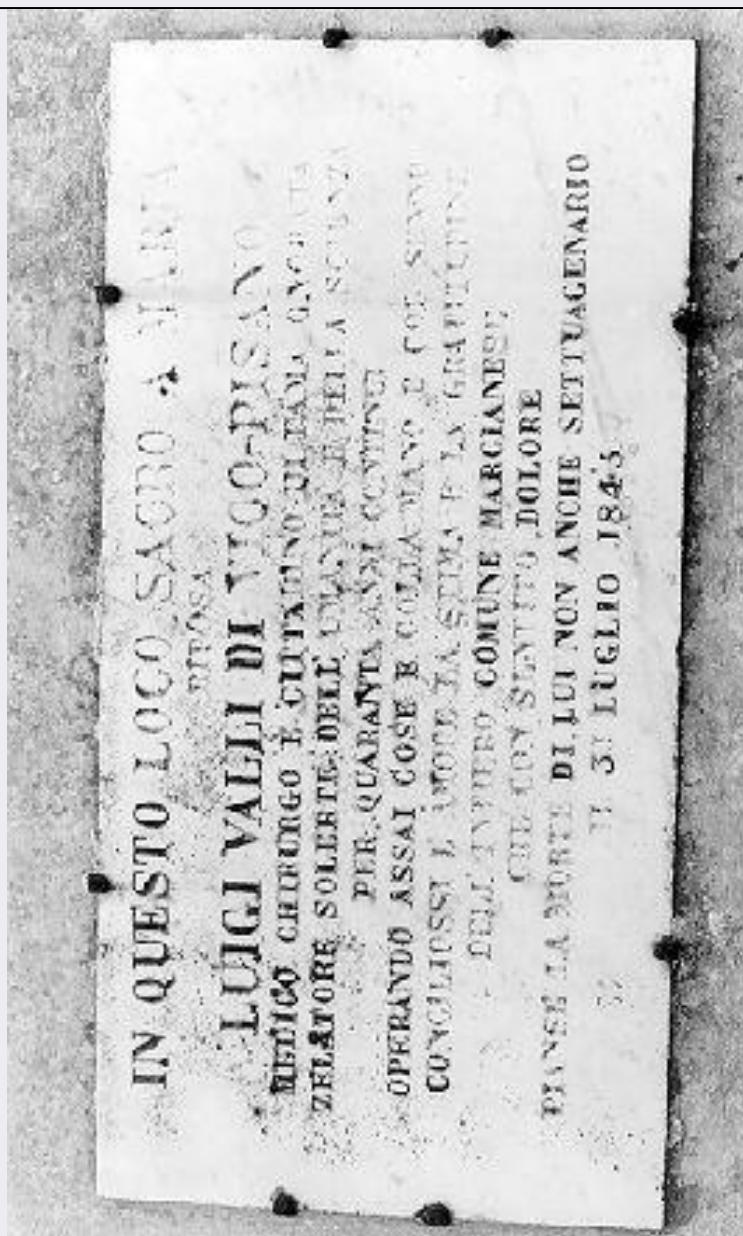 IN QUESTO LOCO SACRO A MARIA
RIPOSA
LUIGI VALLI DI VICO-PISANO
MEDICO CHIRURGO E CITTADINO DI FAMA ONORATA
ZELATORE SOLERTE DELL' UMANITÀ E DELLA SCIENZA
PER QUARANTA ANNI CONTINUI
OPERANDO ASSAI COSE E COLLA MANO E COL SENNO
CONCILIOSSI L' AMORE LA STIMA E LA GRATITUDINE
DELL' INTIERO COMUNE MARCIANESE
CHE CON SENTITO DOLORE
PIANSE LA MORTE DI LUI NON ANCHE SETTUAGENARIO
IL 31 LUGLIO 1843